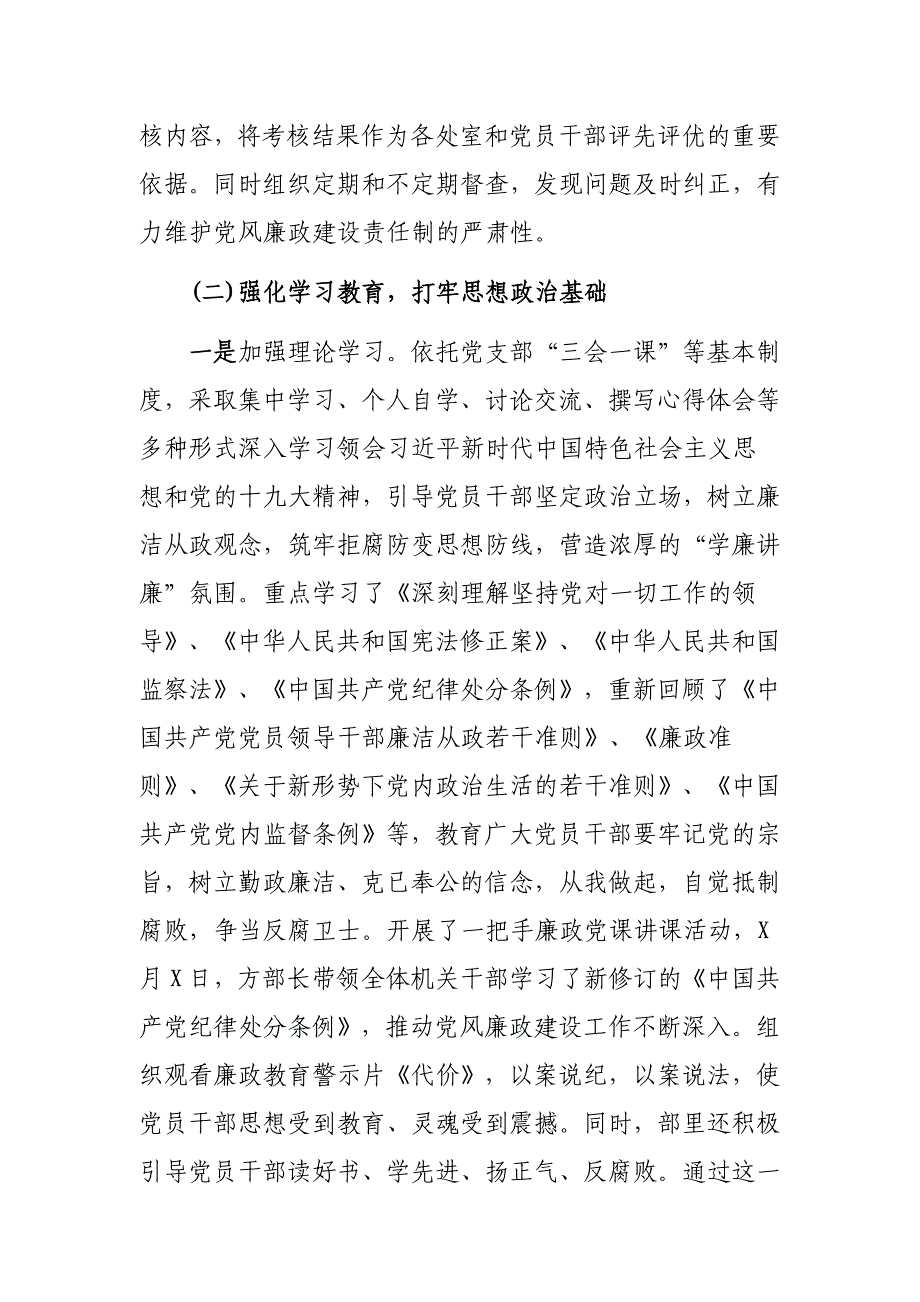 核内容，将考核结果作为各处室和党员干部评先评优的重要
依据。同时组织定期和不定期督查，发现问题及时纠正，有
力维护党风廉政建设责任制的严肃性。
(二)强化学习教育，打牢思想政治基础
一是加强理论学习。依托党支部“三会一课”等基本制
度，采取集中学习、个人自学、讨论交流、撰写心得体会等
多种形式深入学习领会习近平新时代中国特色社会主义思
想和党的十九大精神，引导党员干部坚定政治立场，树立廉
洁从政观念，筑牢拒腐防变思想防线，营造浓厚的“学廉讲
廉”氛围。重点学习了《深刻理解坚持党对一切工作的领
导》、《中华人民共和国宪法修正案》、《中华人民共和国
监察法》、《中国共产党纪律处分条例》，重新回顾了《中
国共产党党员领导干部廉洁从政若干准则》、《廉政准
则》、《关于新形势下党内政治生活的若干准则》、《中国
共产党党内监督条例》等，教育广大党员干部要牢记党的宗
旨，树立勤政廉洁、克已奉公的信念，从我做起，自觉抵制
腐败，争当反腐卫士。开展了一把手廉政党课讲课活动，X
月 X 日，方部长带领全体机关干部学习了新修订的《中国共
产党纪律处分条例》，推动党风廉政建设工作不断深入。组
织观看廉政教育警示片《代价》，以案说纪，以案说法，使
党员干部思想受到教育、灵魂受到震撼。同时，部里还积极
引导党员干部读好书、学先进、扬正气、反腐败。通过这一